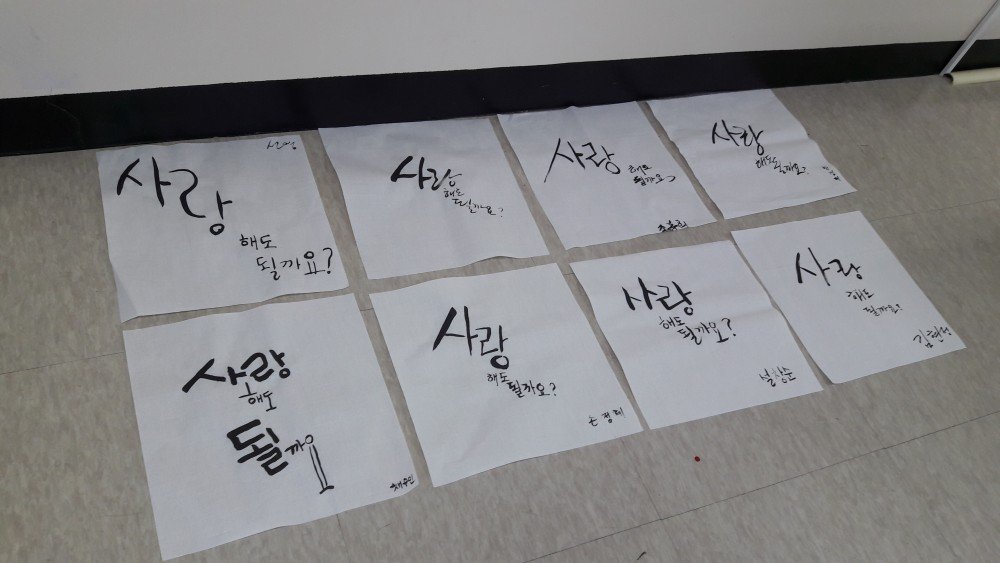 선영
사랑
해도
될까요?
사랑
해도
될까요?
사랑
해도
될까요?
조흥희
사랑
해도
될까요?
사랑
해도
될까요
채수인
사랑
해도
될까요?
손정혜
사랑
해도
될까요?
남창순
사랑
해도
될까요?